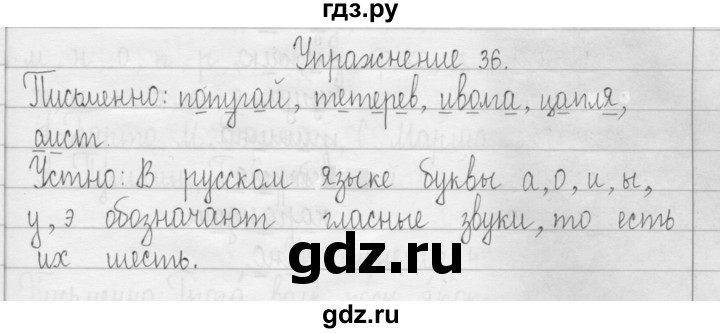 гдз.ру
Упражнение 36.
Письменно: попугай, тетерев, иволга, цапля,
аист.
Устно: В русском языке буквы а, о, и, ы,
у, э обозначают гласные звуки, то есть
их шесть.
gdz.ru